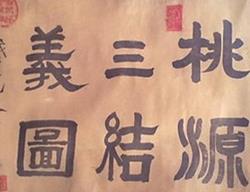 桃源
三結
義圖